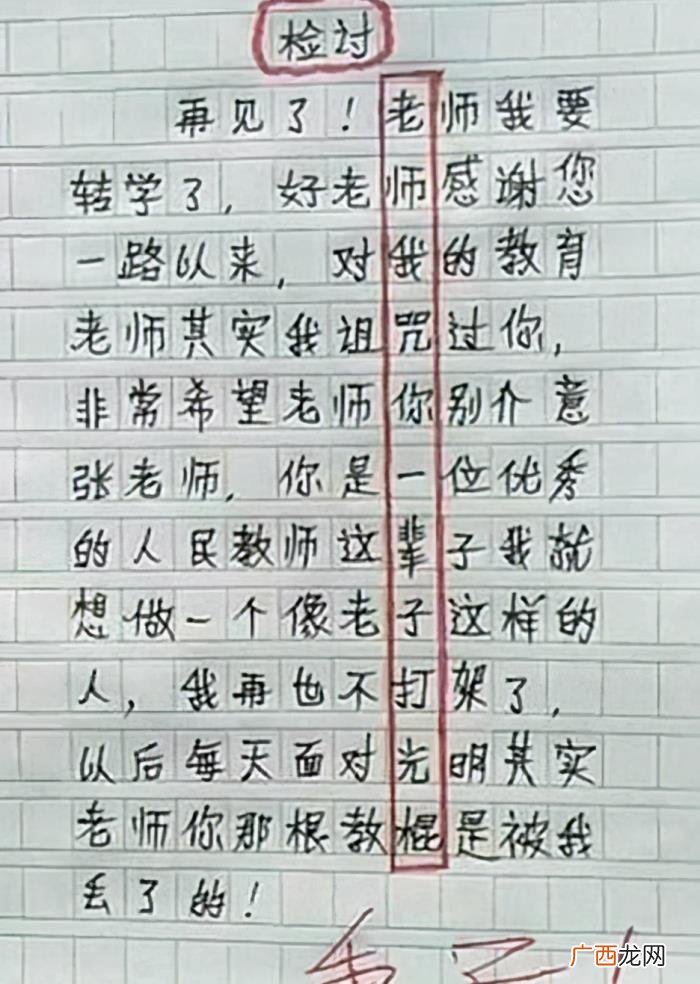 检讨
再见了！老师我要
转学了，好老师感谢您
一路以来，对我的教育
老师其实我诅咒过你，
非常希望老师你别介意
张老师，你是一位优秀
的人民教师这辈子我就
想做一个像老子这样的
人，我再也不打架了，
以后每天面对光明其实
老师你那根教棍是被我
丢了的！
广西龙网